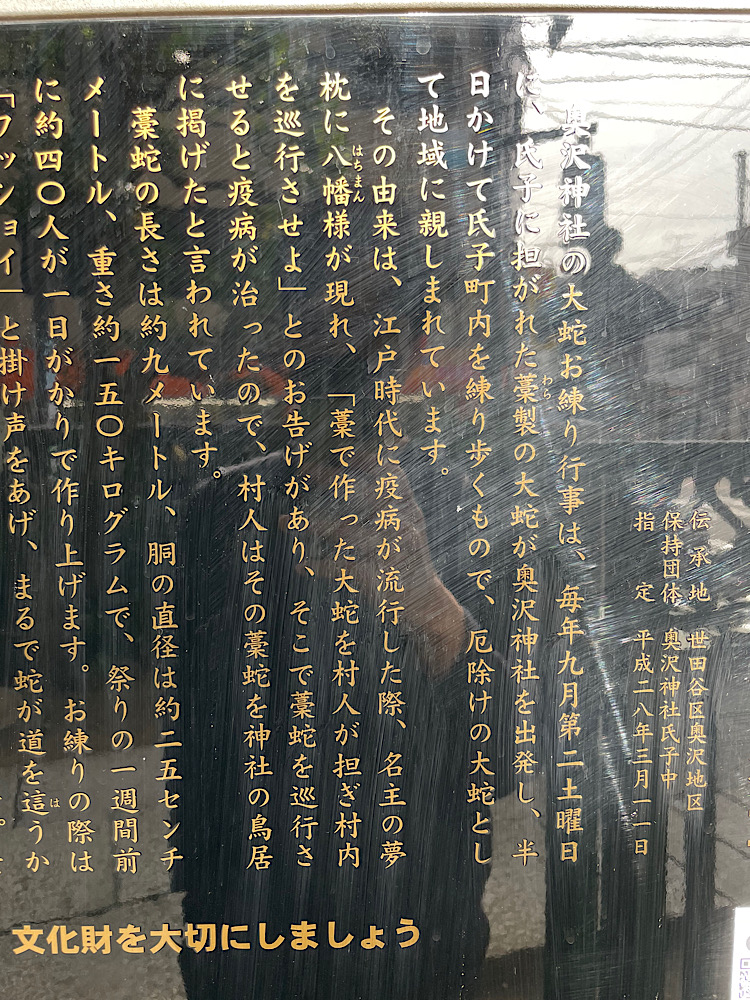 伝承地 世田谷区奥沢地区
保持団体 奥沢神社氏子中
指定 平成二八年三月一一日
奥沢神社の大蛇お練り行事は、毎年九月第二土曜日
に、氏子に担がれた藁製の大蛇が奥沢神社を出発し、半
わら
日かけて氏子町内を練り歩くもので、厄除けの大蛇とし
て地域に親しまれています。
その由来は、江戸時代に疫病が流行した際、名主の夢
枕に八幡様が現れ、「藁で作った大蛇を村人が担ぎ村内
はちまん
を巡行させよ」とのお告げがあり、そこで藁蛇を巡行さ
せると疫病が治ったので、村人はその藁蛇を神社の鳥居
に掲げたと言われています。
藁蛇の長さは約九メートル、胴の直径は約二五センチ
メートル、重さ約一五〇キログラムで、祭りの一週間前
に約四〇人が一日がかりで作り上げます。お練りの際は
「ワッショイ」と掛け声をあげ、まるで蛇が道を這うか
は
文化財を大切にしましょう